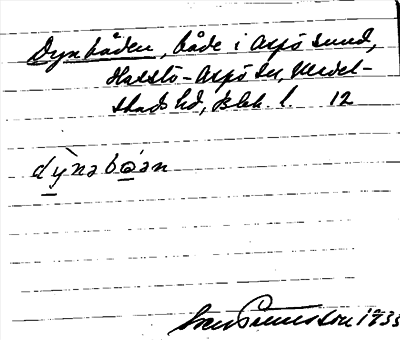 Dynbåden, både i Aspö sund,
Hasslö-Aspö sn, Medel-
stads hd, Blek. l. 12
dỳnəbǫ́ən
Sven Benson 1935